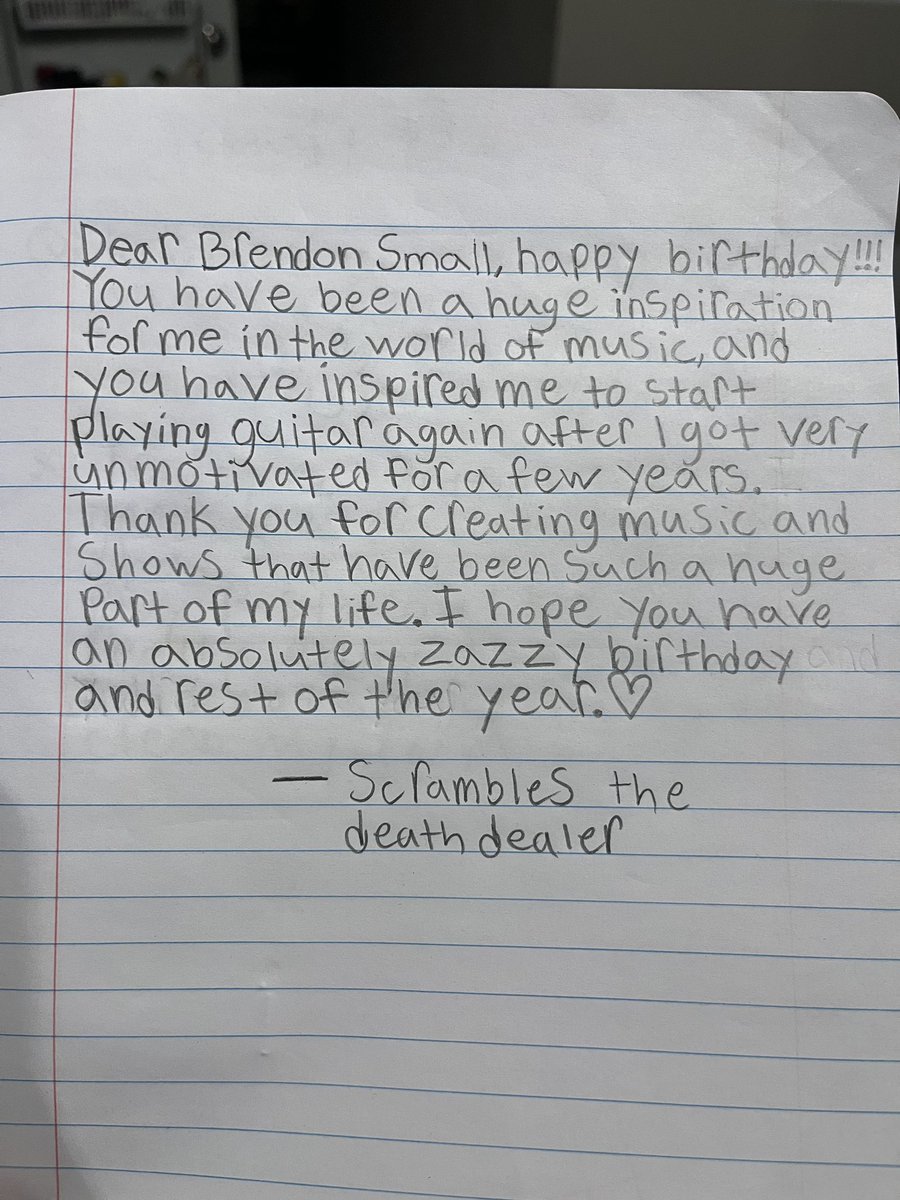 Dear Brendon Small, happy birthday!!!
You have been a huge inspiration
for me in the world of music, and
you have inspired me to start
playing guitar again after I got very
unmotivated for a few years.
Thank you for creating music and
Shows that have been such a huge
Part of my life. I hope you have
an absolutely zazzy birthday and
and rest of the year.♡
— Scrambles the
death dealer